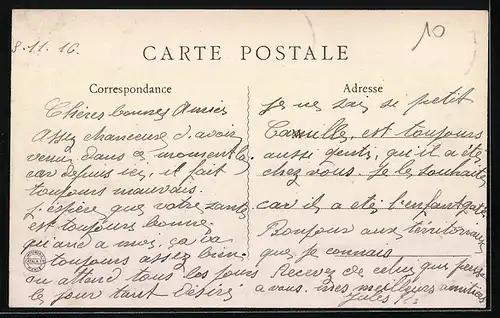 8.11.16.
10
CARTE POSTALE
Correspondance
Adresse
Chères bonnes Amies
Assez chanceuse d'avoir
venu dans ce moment là,
car depuis ici, il fait
toujours mauvais.
j'espère que votre santé
est toujours bonne
quand a moi, ça va
toujours assez bien.
on attend tous les jours
le jour tant désiré
Je ne sais si petit
Camille, est toujours
aussi gentil, qu'il a été
chez vous. Je le souhaite
car il a été l'enfant gaté
Bonjour aux térritoriaux
que je connais.
Recevez de celui qui pense
a vous. mes meilleurs amitiés
Jules